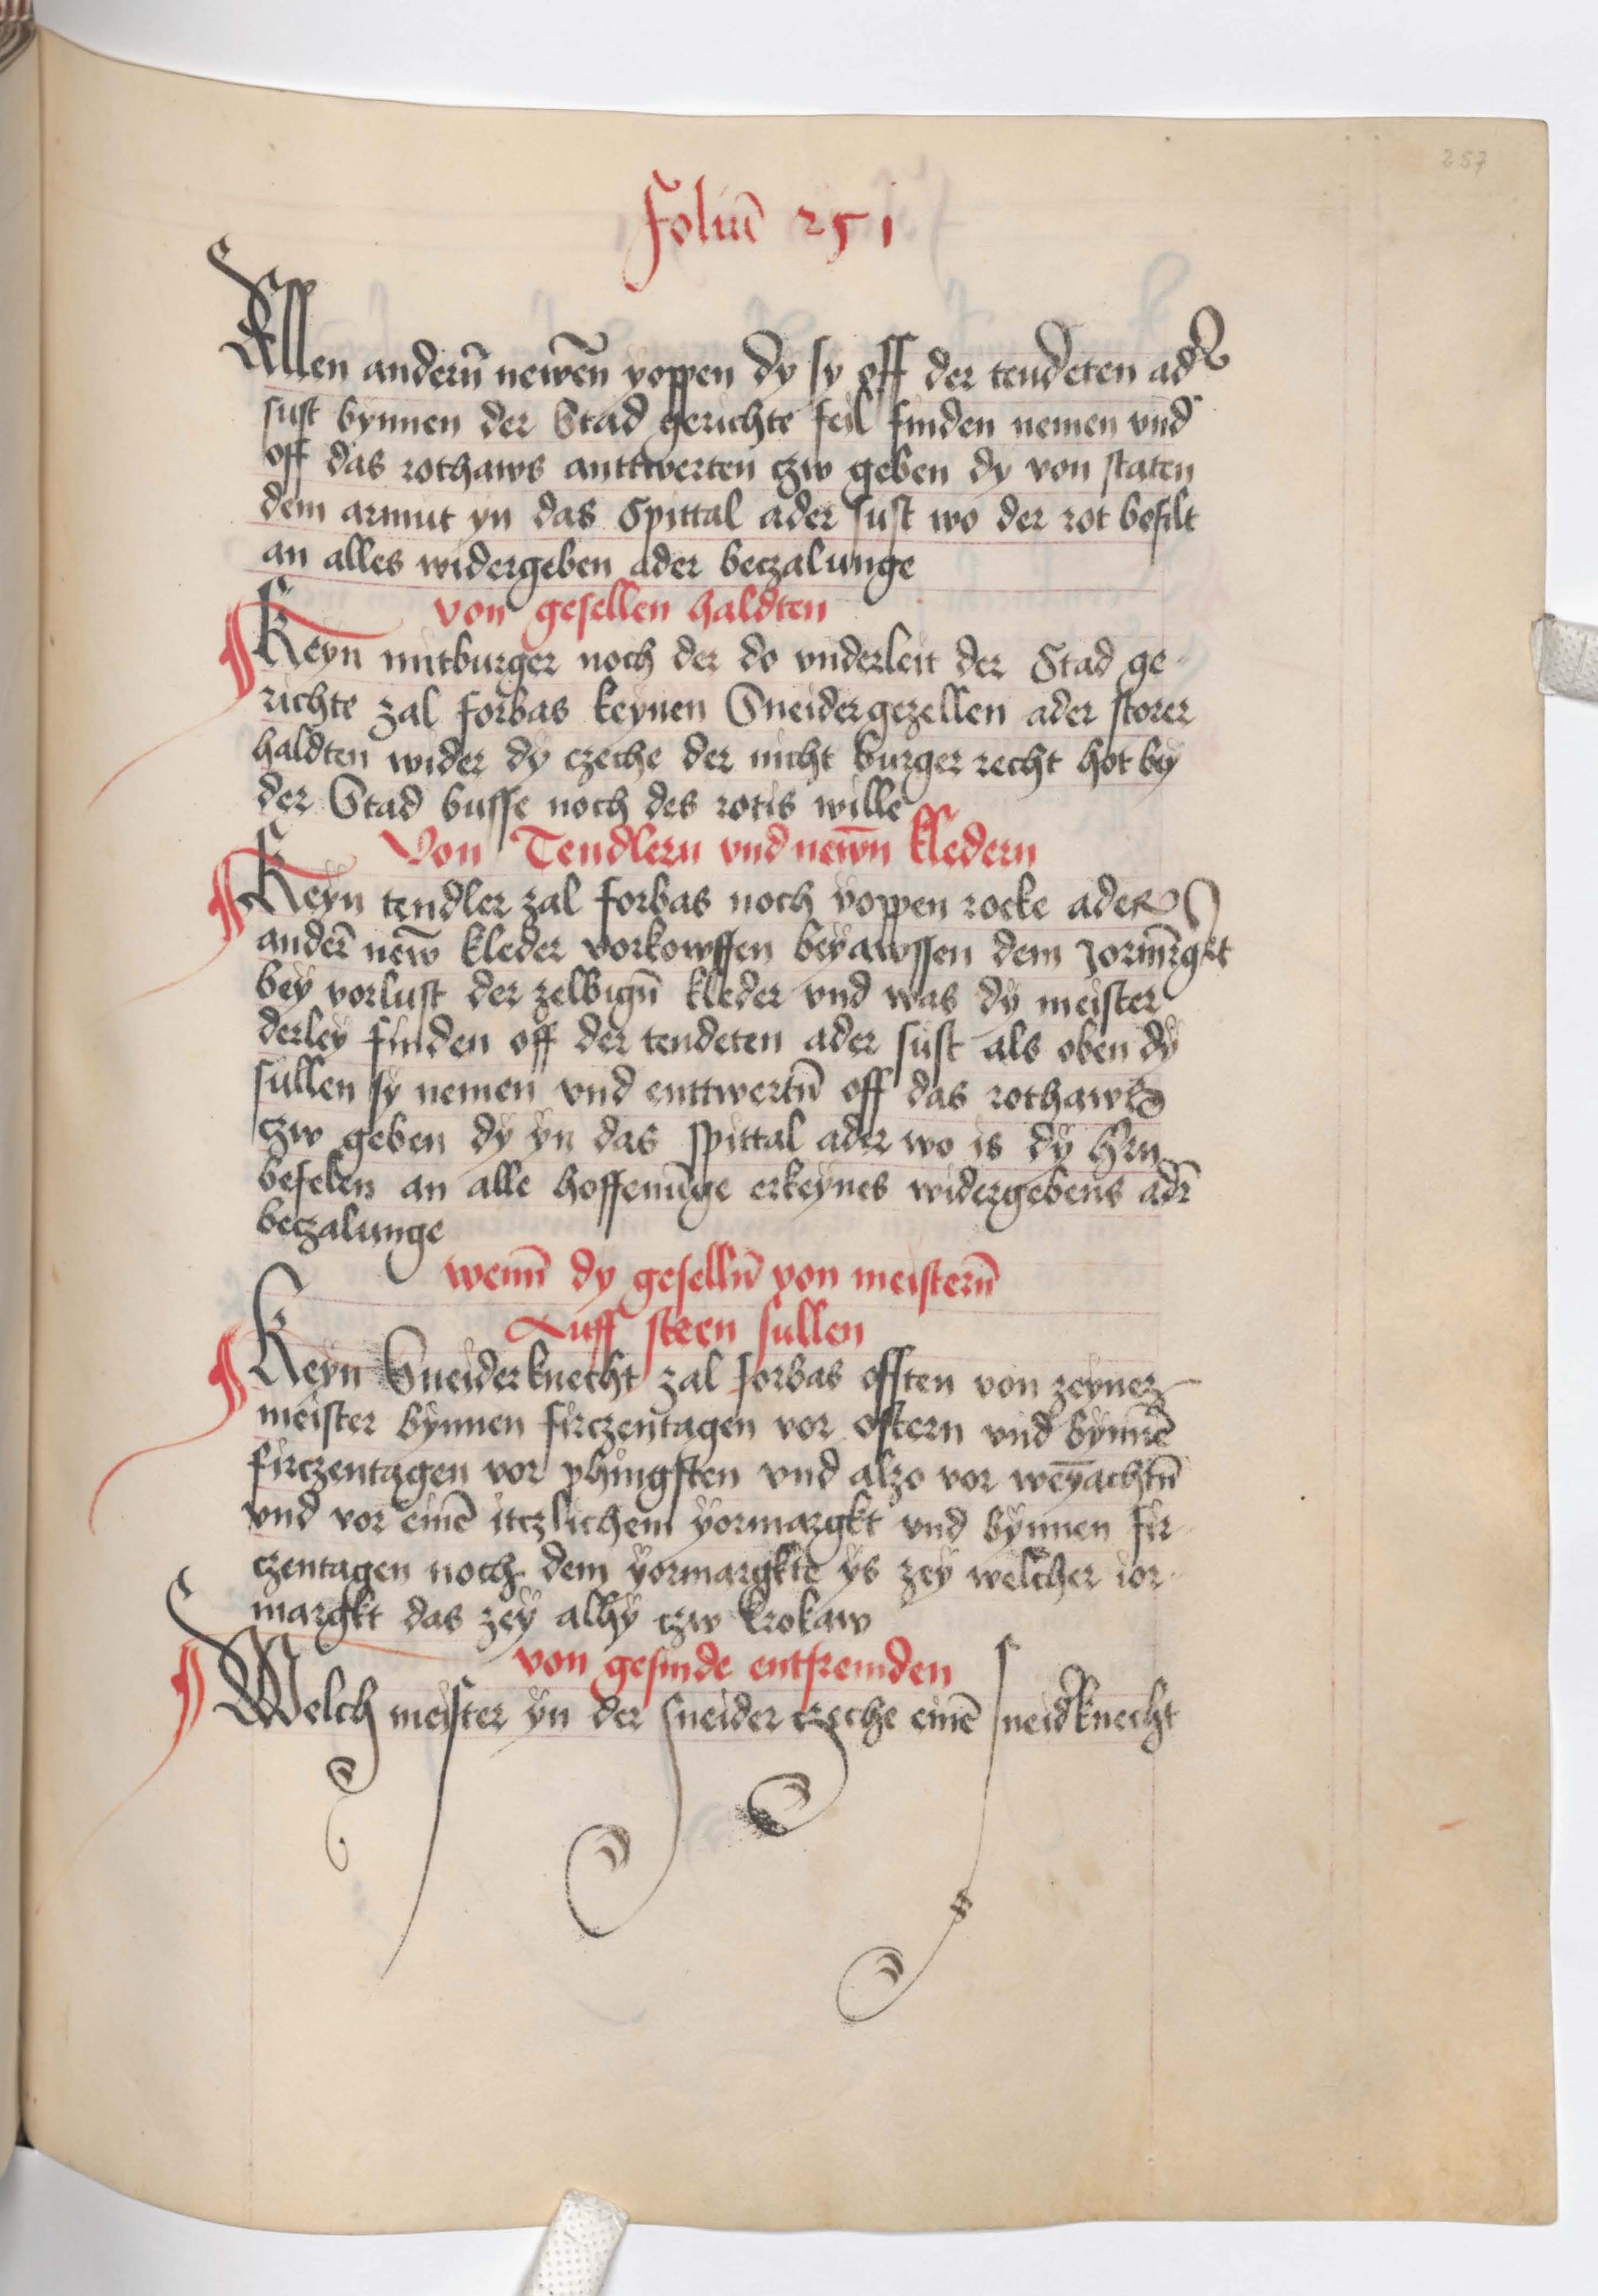 257
Foliu͞ 251
Allen andern̄ newēn yoppen dy sy off der tendeten ader
sust bynnen der Stad gerichte feil finden nemen vnd
off das rothaws anttwerten czw geben dy von staten
dem armut yn das Spittal ader sust wo der rot befilt
an alles widergeben ader beczalunge
von gesellen haldten
Keyn mitburger noch der do vnderleit der Stad ge-
richte zal forbas keynen Sneidergezellen ader storer
haldten wider dy czeche der nicht burger recht hot bey
der Stad busse noch des rotis wille
Von Tendlern vnd newn̄ kledern
Keyn tendler zal forbas noch yoppen rocke ader
ander̄ new̄ kleder vorkowffen beyawssen dem Jorm̄rgkt
bey vorlust der zelbign̄ kleder vnd was dÿ meister
derley finden off der tendeten ader sust als oben dÿ
sullen sy nemen vnd enttwertn̄ off das rothaws
czw geben dy ÿn das spittal ader wo is dÿ hr̄n
befelen an alle hoffenūnge erkeynes widergebens adr̄
beczalunge
wenn̄ dy geselln̄ von meistern̄
Auff steen sullen
Keyn Sneiderknecht zal forbas offsten von zeynez
meister bynnen firczentagen vor ostern vnd bynnē
firczentagen vor phingsten vnd alzo vor weyachtn̄
vnd vor einē itczlichem yormargkt vnd bynnen fir-
czentagen noch dem yormargkte ys zey welcher ior-
margkt das zey alhy czw krokaw
von gesinde entfremden
Welch meister ÿn der sneider czeche einē sneidknecht